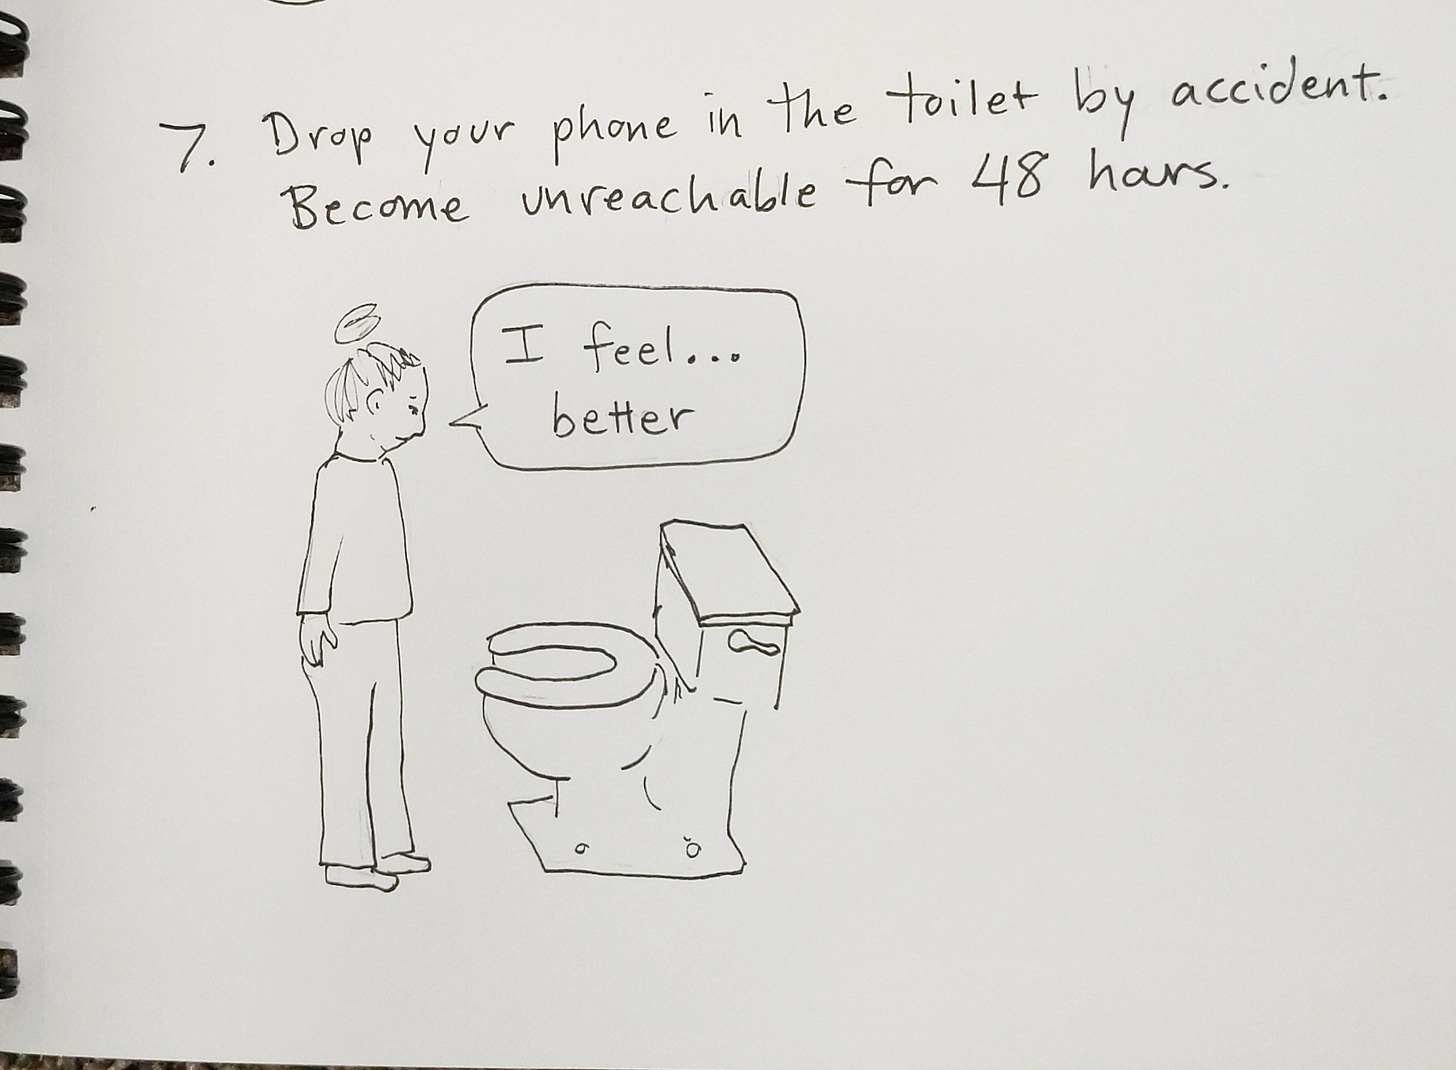 7. Drop your phone in the toilet by accident.
Become unreachable for 48 hours.
I feel...
better